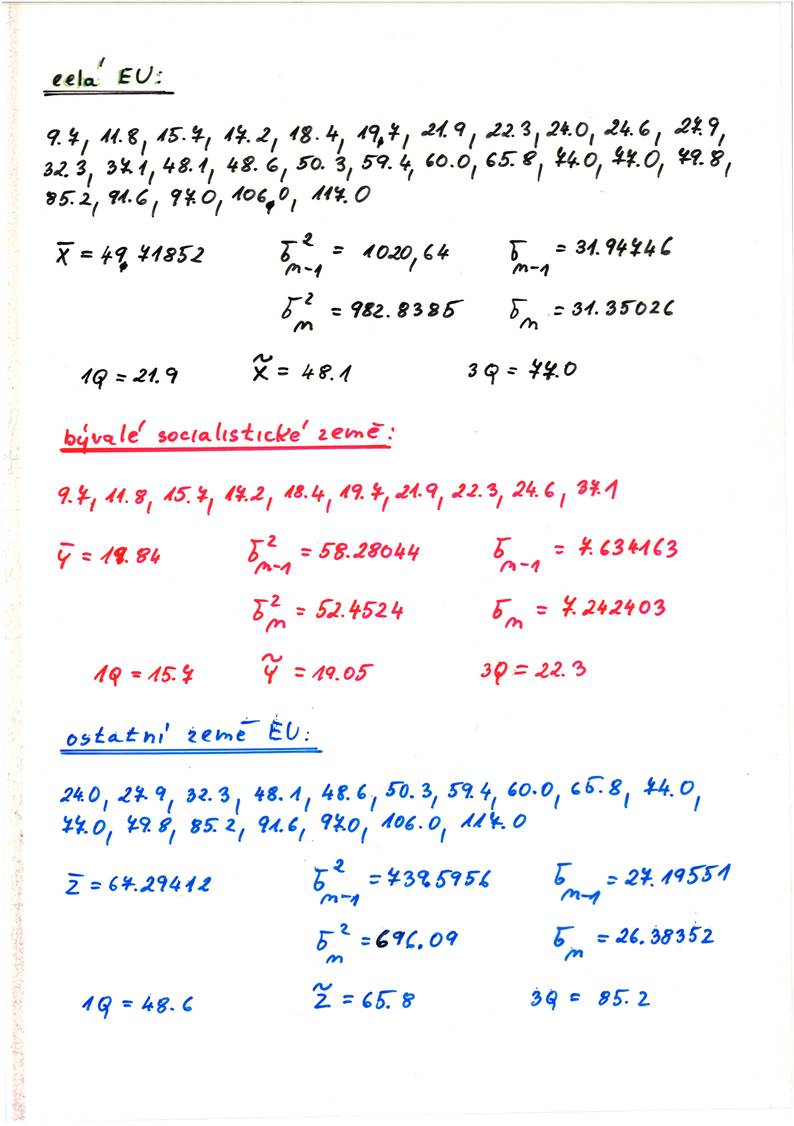 celá EU:
9.7, 11.8, 15.7, 17.2, 18.4, 19,7, 21.9, 22.3, 24.0, 24.6, 27.9,
32.3, 37.1, 48.1, 48.6, 50.3, 59.4, 60.0, 65.8, 74.0, 77.0, 79.8,
85.2, 91.6, 97.0, 106,0, 117.0
x̄ = 49,71852 σ²ₙ₋₁ = 1020,64 σₙ₋₁ = 31.94746
σ²ₙ = 982.8385 σₙ = 31.35026
1Q = 21.9 x̃ = 48.1 3Q = 77.0
bývalé socialistické země:
9.7, 11.8, 15.7, 17.2, 18.4, 19.7, 21.9, 22.3, 24.6, 37.1
ȳ = 19.84 σ²ₙ₋₁ = 58.28044 σₙ₋₁ = 7.634163
σ²ₙ = 52.4524 σₙ = 7.242403
1Q = 15.7 ỹ = 19.05 3Q = 22.3
ostatní země EU:
24.0, 27.9, 32.3, 48.1, 48.6, 50.3, 59.4, 60.0, 65.8, 74.0,
77.0, 79.8, 85.2, 91.6, 97.0, 106.0, 117.0
z̄ = 67.29412 σ²ₙ₋₁ = 739.5956 σₙ₋₁ = 27.19551
σ²ₙ = 696.09 σₙ = 26.38352
1Q = 48.6 z̃ = 65.8 3Q = 85.2